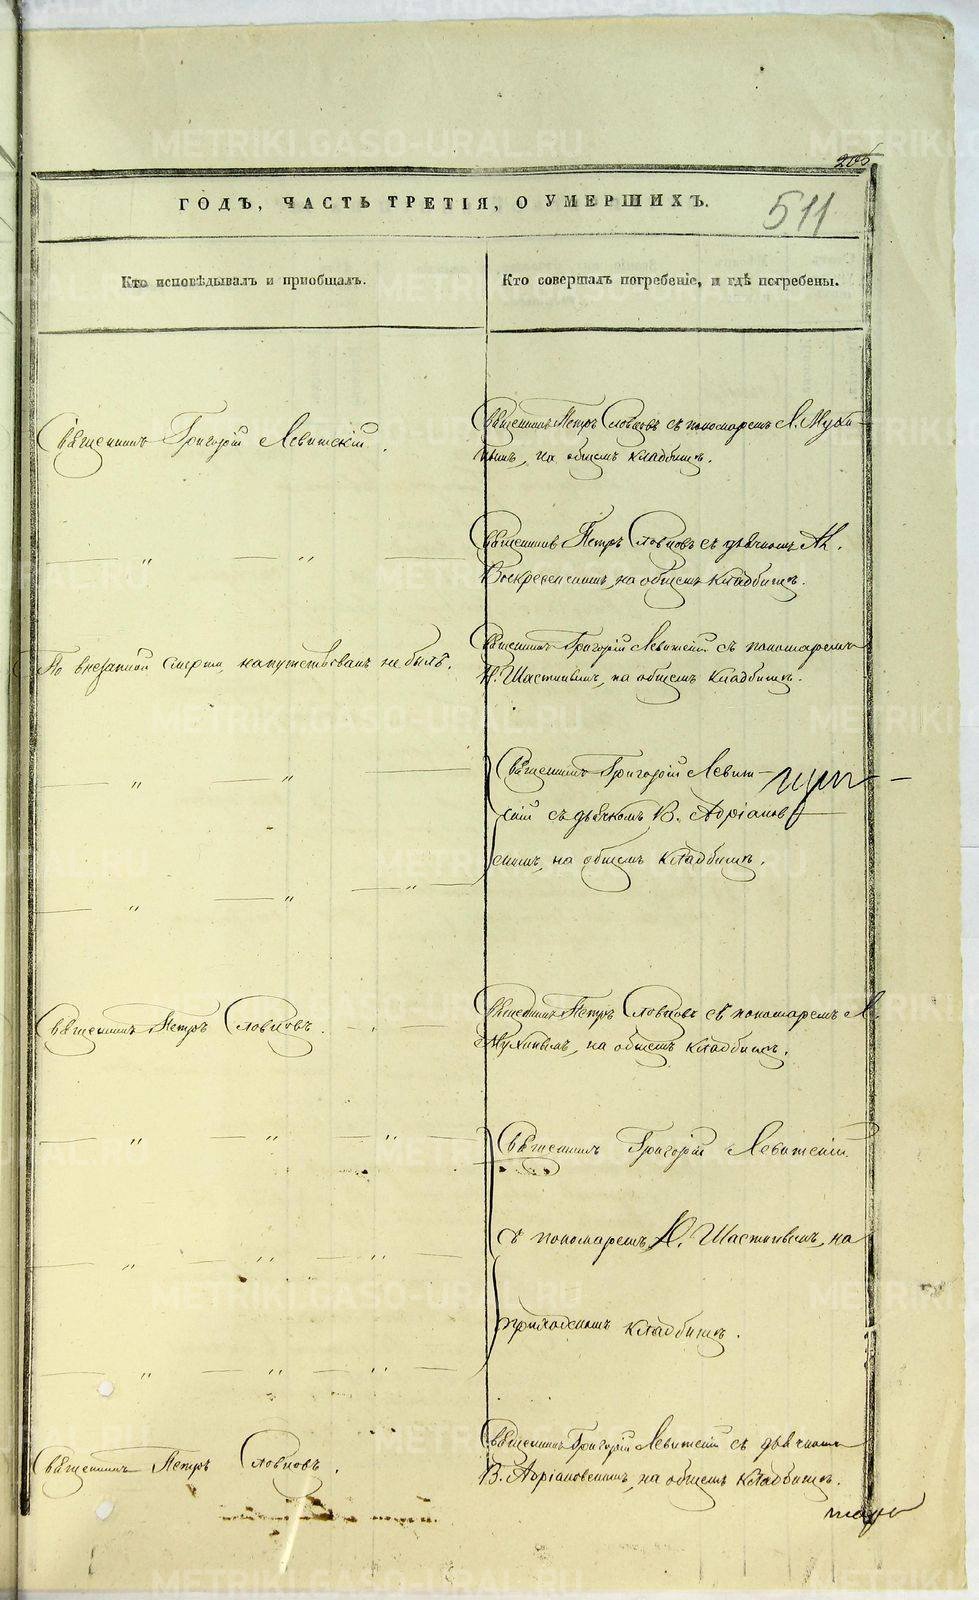 205
ГОДЪ, ЧАСТЬ ТРЕТІЯ, О УМЕРШИХЪ.
511
Кто исповѣдывалъ и пріобщалъ.
Кто совершалъ погребеніе, и гдѣ погребены.
Священникъ Григорій Левитскій.
Священникъ Петръ Словцовъ съ пономаремъ Л. Мухи-
нымъ, на общемъ кладбищѣ.
— „ — „ —
Священникъ Петръ Словцовъ съ дьячкомъ
Воскресенскимъ, на общемъ кладбищѣ.
По внезапной смерти, напутствованъ не былъ.
Священникъ Григорій Левитскій съ пономаремъ
Н. Шастинымъ, на общемъ кладбищѣ.
— „ — „ —
Священникъ Григорій Левит-
скій съ дьячкомъ В. Адріанов
скимъ, на общемъ кладбищѣ.
— „ — „ — „ —
Священникъ Петръ Словцовъ.
Священникъ Петръ Словцовъ съ пономаремъ Л.
Мухинымъ, на общемъ кладбищѣ.
— „ — „ — „ —
Священникъ Григорій Левитскій
— „ — „ — „ —
съ пономаремъ Н. Шастинымъ, на
приходскомъ кладбищѣ.
— „ — „ — „ —
Священникъ Петръ Словцовъ.
Священникъ Григорій Левитскій съ дьячкомъ
В. Адріановскимъ, на общемъ кладбищѣ.
METRIKI.GASO-URAL.RU